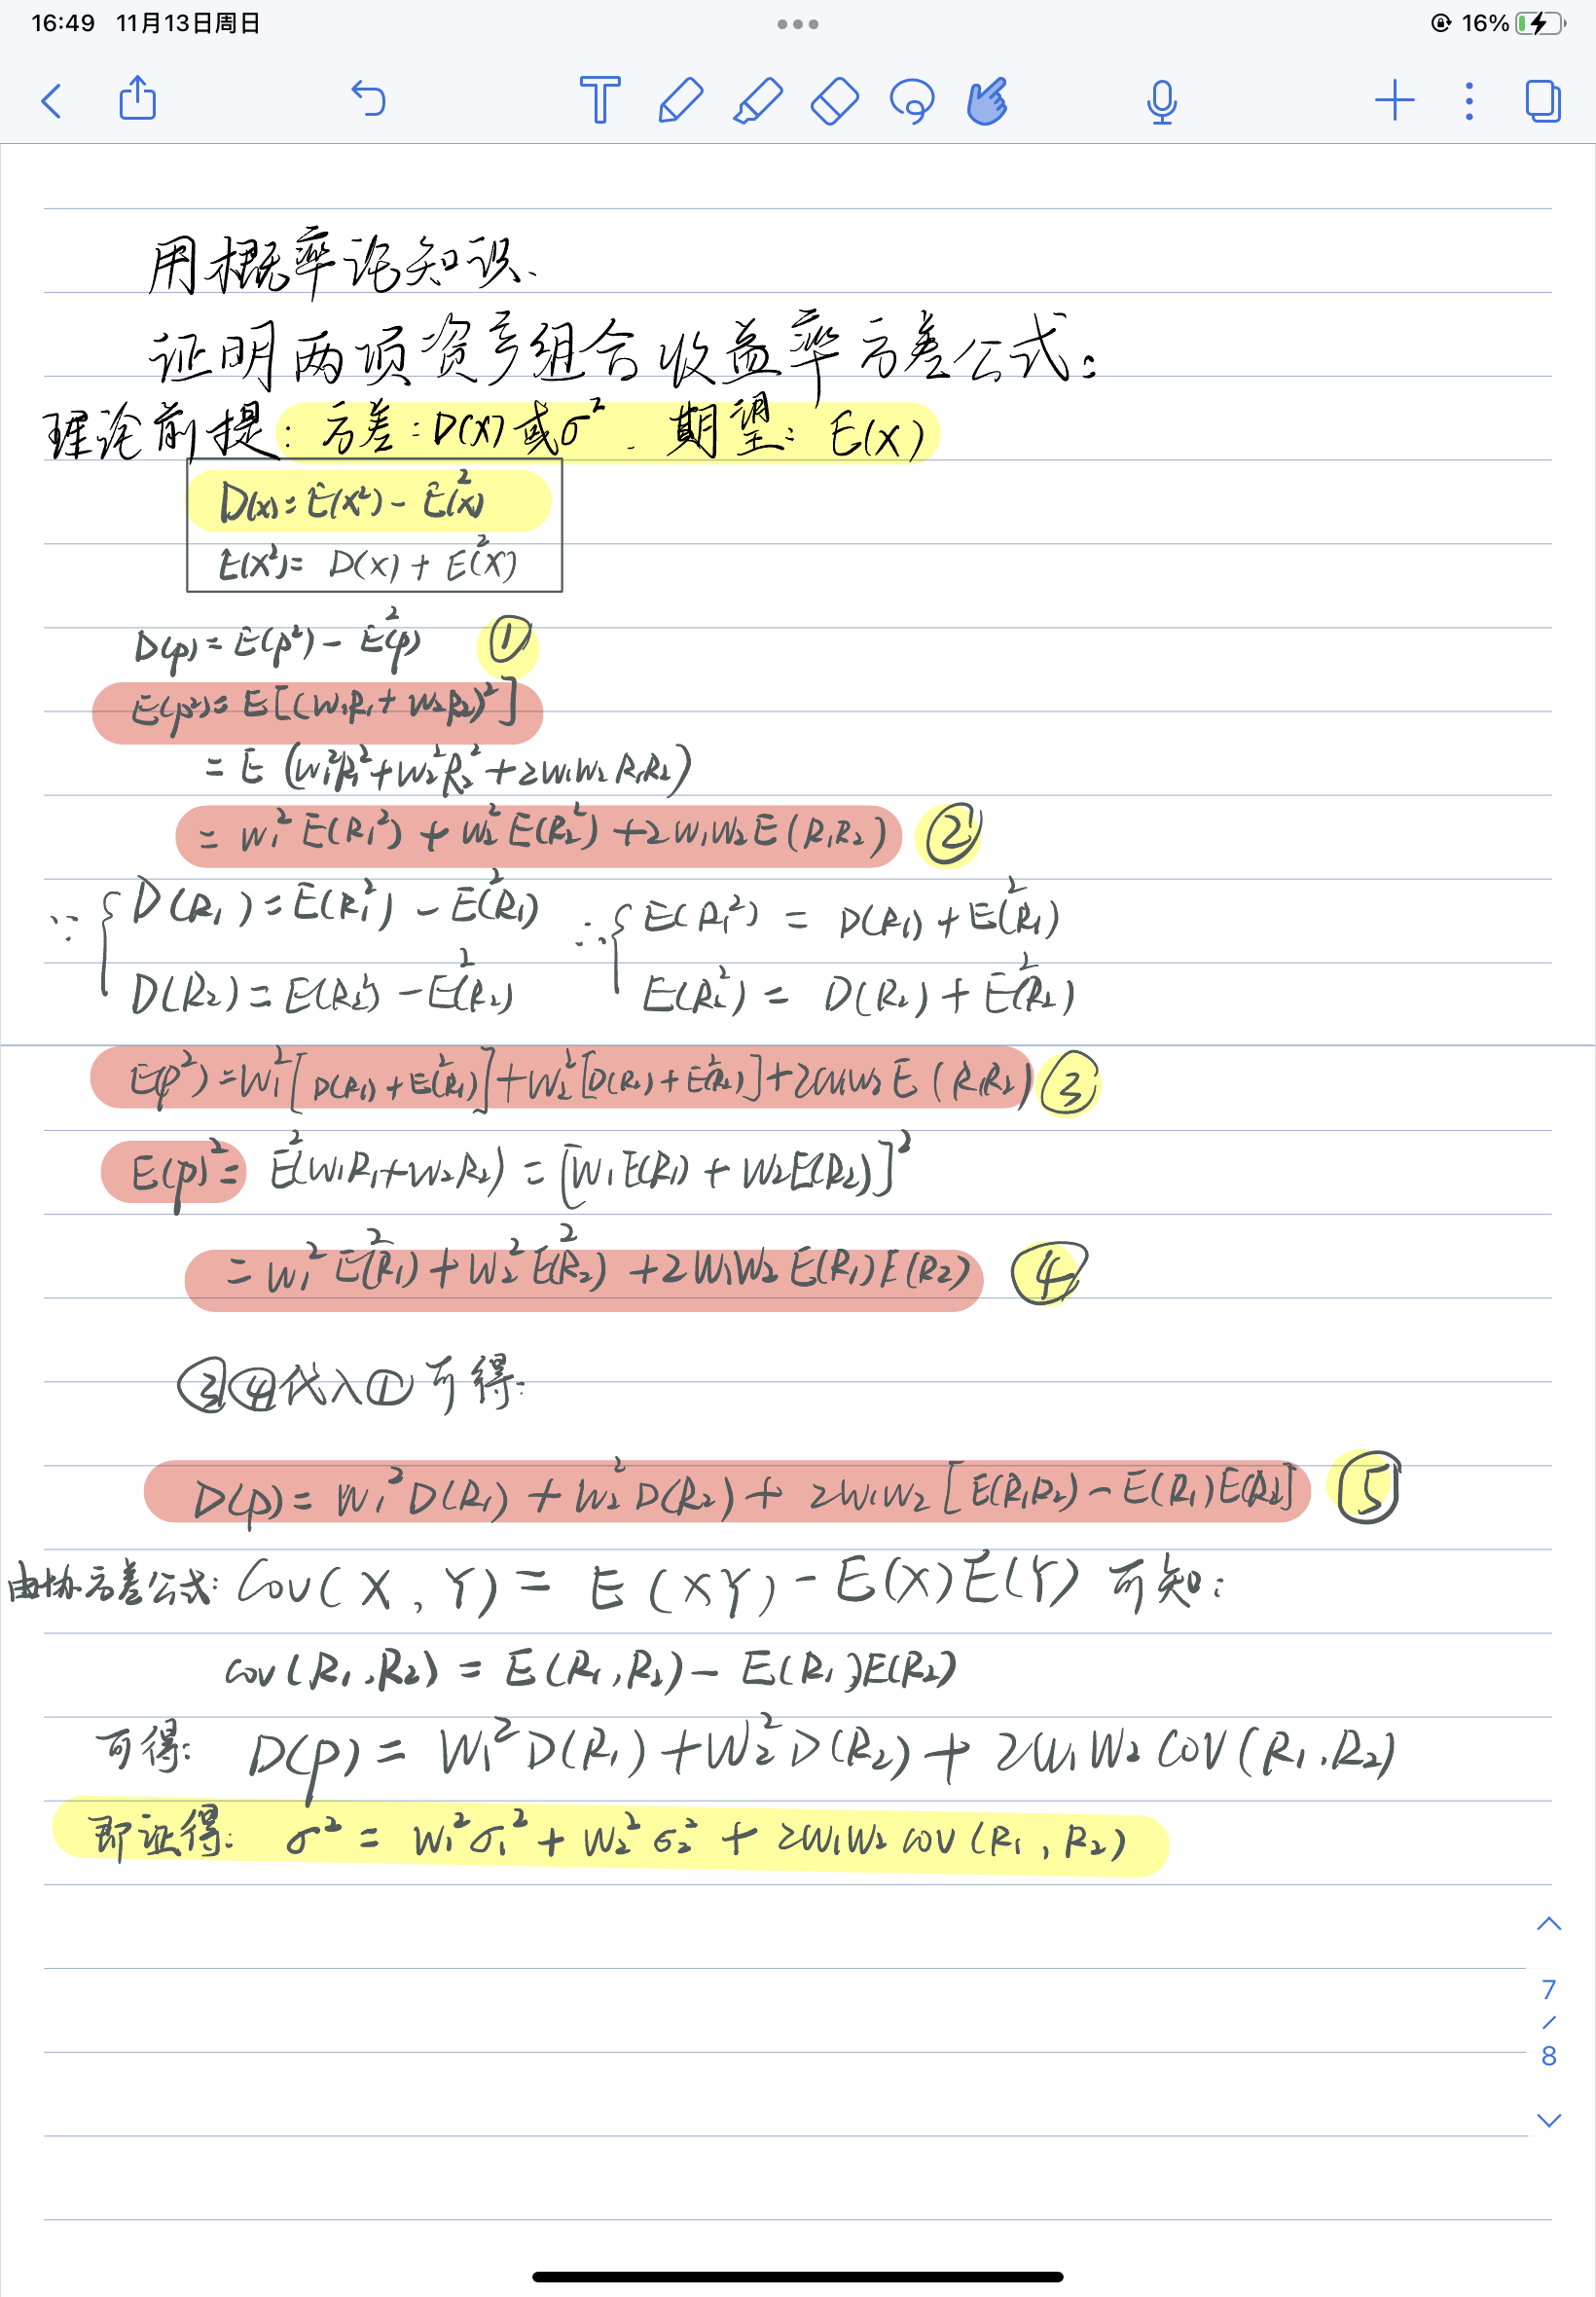 16:49 11月13日周日
16%
T
用概率论知识、
证明两项资产组合收益率方差公式:
理论前提: 方差:D(X)或σ². 期望: E(X)
D(x)=E(X²)-E²(x)
E(X²)= D(x)+E²(X)
D(p)=E(p²)-E²(p) ①
E(p²)=E[(W₁R₁+W₂R₂)²]
=E(W₁²R₁²+W₂²R₂²+2W₁W₂R₁R₂)
=W₁²E(R₁²)+W₂²E(R₂²)+2W₁W₂E(R₁R₂) ②
∵{D(R₁)=E(R₁²)-E²(R₁) ∴{E(R₁²)=D(R₁)+E²(R₁)
D(R₂)=E(R₂²)-E²(R₂) E(R₂²)=D(R₂)+E²(R₂)
E(p²)=W₁²[D(R₁)+E²(R₁)]+W₂²[D(R₂)+E²(R₂)]+2W₁W₂E(R₁R₂) ③
E(p)²=E²(W₁R₁+W₂R₂)=[W₁E(R₁)+W₂E(R₂)]²
=W₁²E²(R₁)+W₂²E²(R₂)+2W₁W₂E(R₁)E(R₂) ④
③④代入①可得:
D(p)=W₁²D(R₁)+W₂²D(R₂)+2W₁W₂[E(R₁R₂)-E(R₁)E(R₂)] ⑤
由协方差公式: Cov(X,Y)=E(XY)-E(X)E(Y) 可知:
cov(R₁,R₂)=E(R₁,R₂)-E(R₁)E(R₂)
可得: D(p)=W₁²D(R₁)+W₂²D(R₂)+2W₁W₂COV(R₁,R₂)
即证得: σ²=W₁²σ₁²+W₂²σ₂²+2W₁W₂cov(R₁,R₂)
7
/
8